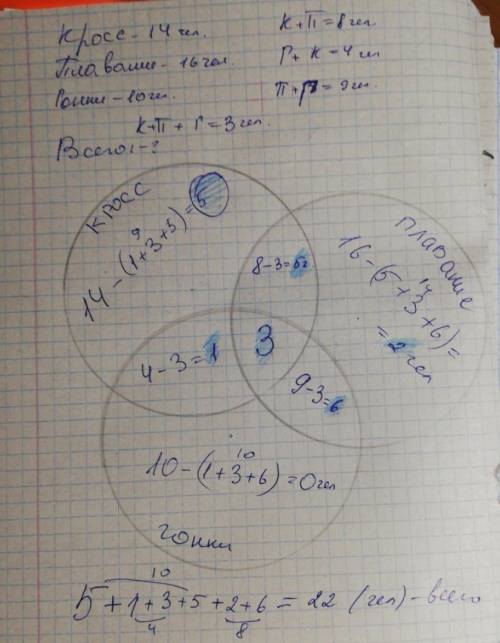 Кросс - 14 чел.
К+П = 8 чел.
Плавание - 16 чел.
Г + К = 4 чел
Гонки - 10 чел.
П+Г = 9 чел.
К+П + Г = 3 чел.
Всего - ?
кросс
9
14 - (1+3+5) = 5
плавание
14
16 - (5+3+6) =
= 2 чел
8-3=5
4-3=1
3
9-3=6
10
10 - (1+3+6) = 0 чел
гонки
10
5+1+3+5+2+6 = 22 (чел) - всего
4
8